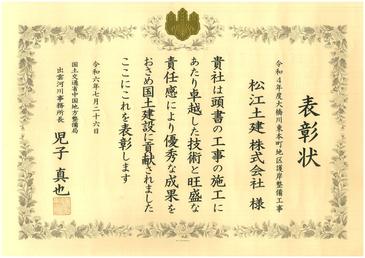 表彰状
令和4年度大橋川東本町地区護岸整備工事
松江土建 株式会社 様
貴社は頭書の工事の施工に
あたり卓越した技術と旺盛な
責任感により優秀な成果を
おさめ国土建設に貢献されました
ここにこれを表彰します
令和六年七月二十六日
国土交通省中国地方整備局
出雲河川事務所長 児子 真也